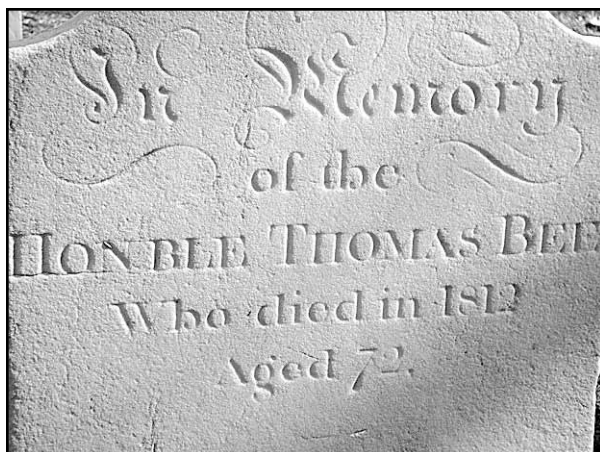 In Memory
of the
HONBLE THOMAS BEE
Who died in 1812
Aged 72.